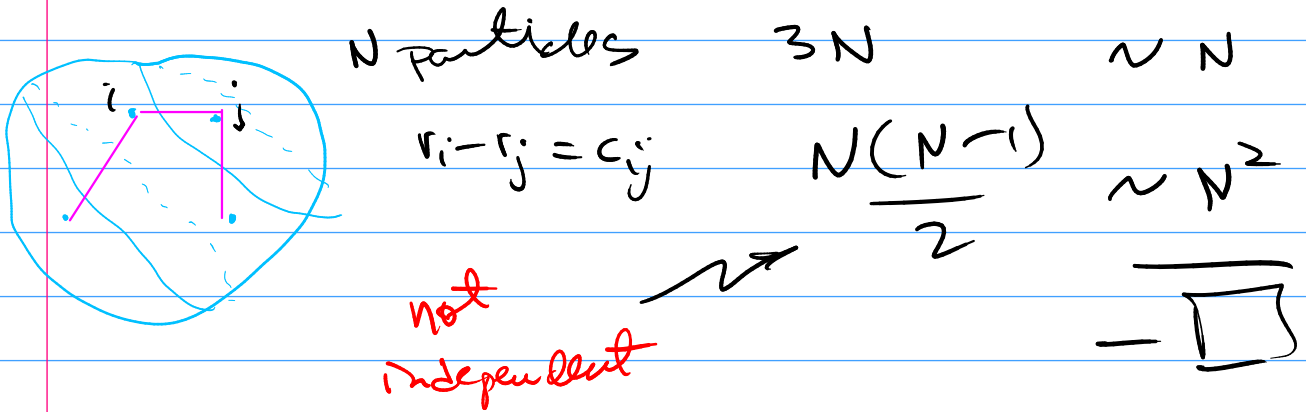 N particles 3N ~ N
i j
r_i - r_j = c_ij N(N-1)/2 ~ N^2
not
independent
—